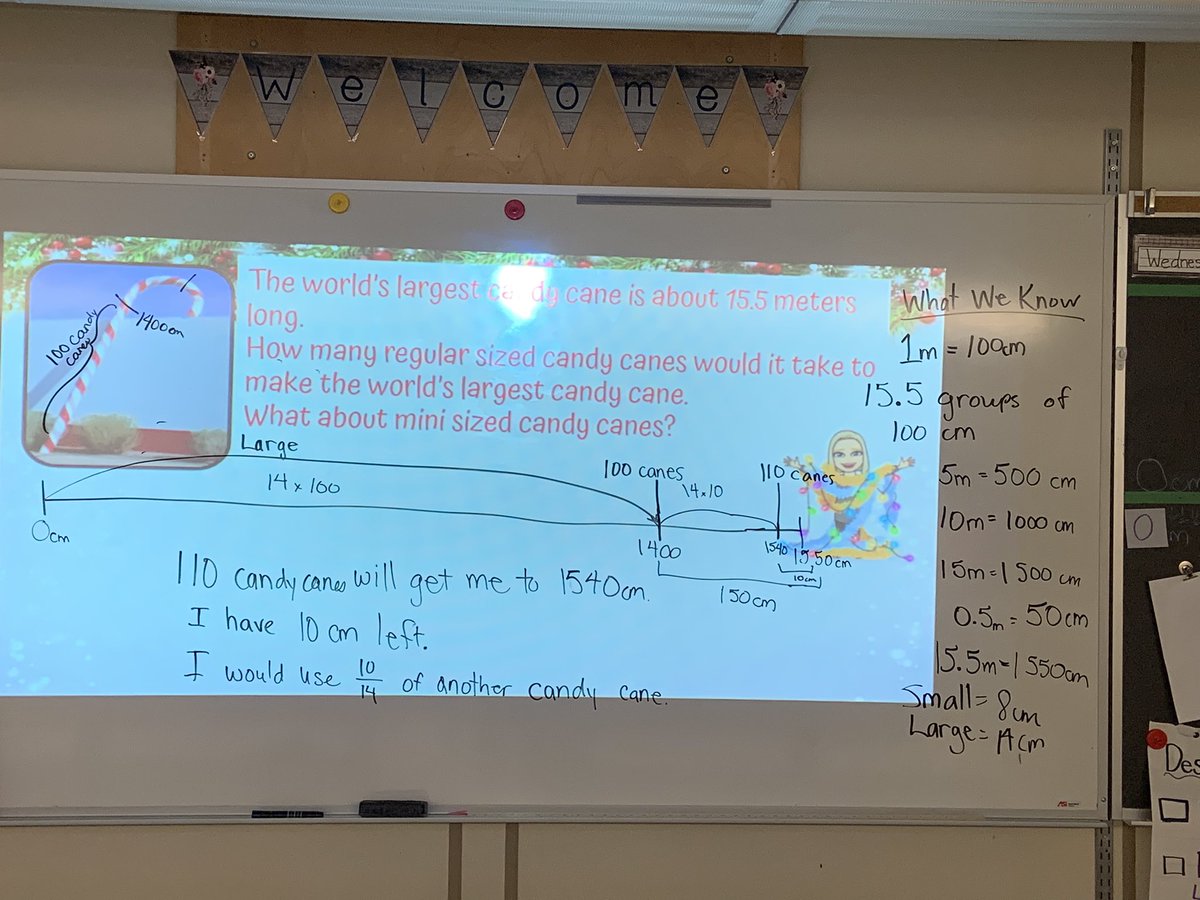 Welcome
The world's largest candy cane is about 15.5 meters
long.
How many regular sized candy canes would it take to
make the world's largest candy cane.
What about mini sized candy canes?
100 candy
canes
1400cm
Large
14 x 100
100 canes
14x10
110 canes
0cm
1400
1540
1550cm
10cm
150cm
110 candy canes will get me to 1540cm.
I have 10 cm left.
I would use 10/14 of another candy cane.
What We Know
1m = 100cm
15.5 groups of
100 cm
5m = 500 cm
10m = 1000 cm
15m = 1500 cm
0.5m = 50cm
15.5m = 1550cm
Small = 8cm
Large = 14cm
Wednes
0
Des